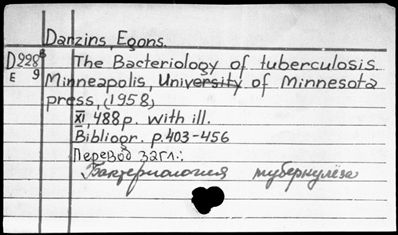 Darzins, Egons.
D228⁸ The Bacteriology of tuberculosis.
E 9 Minneapolis, University of Minnesota
press, (1958)
XI, 488 p. with ill.
Bibliogr. p. 403-456
Перевод загл.:
Бактериология туберкулёза